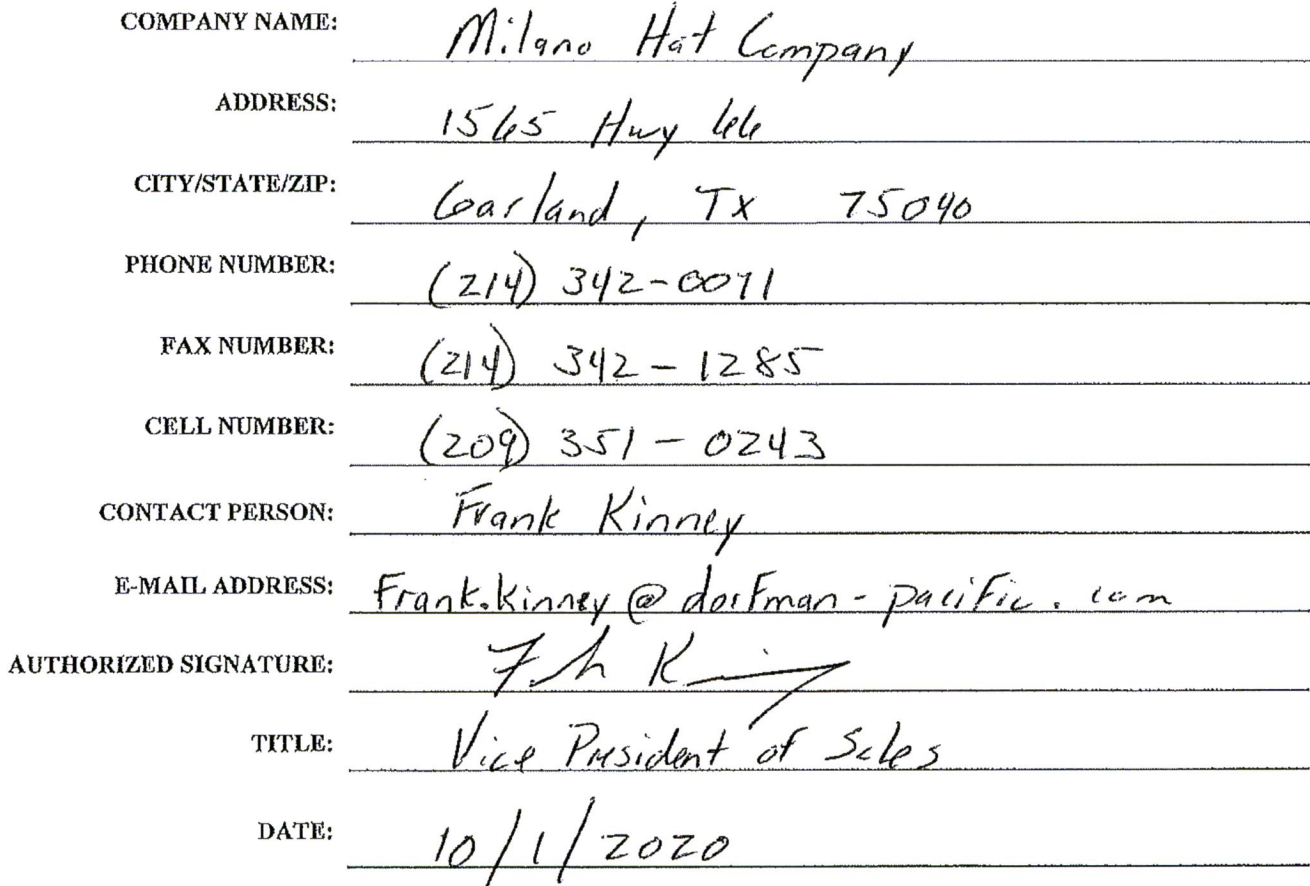 COMPANY NAME: Milano Hat Company
ADDRESS: 1565 Hwy 66
CITY/STATE/ZIP: Garland, Tx 75040
PHONE NUMBER: (214) 342-0071
FAX NUMBER: (214) 342-1285
CELL NUMBER: (209) 351-0243
CONTACT PERSON: Frank Kinney
E-MAIL ADDRESS: Frank.Kinney@dorfman-pacific.com
AUTHORIZED SIGNATURE:
TITLE: Vice President of Sales
DATE: 10/1/2020